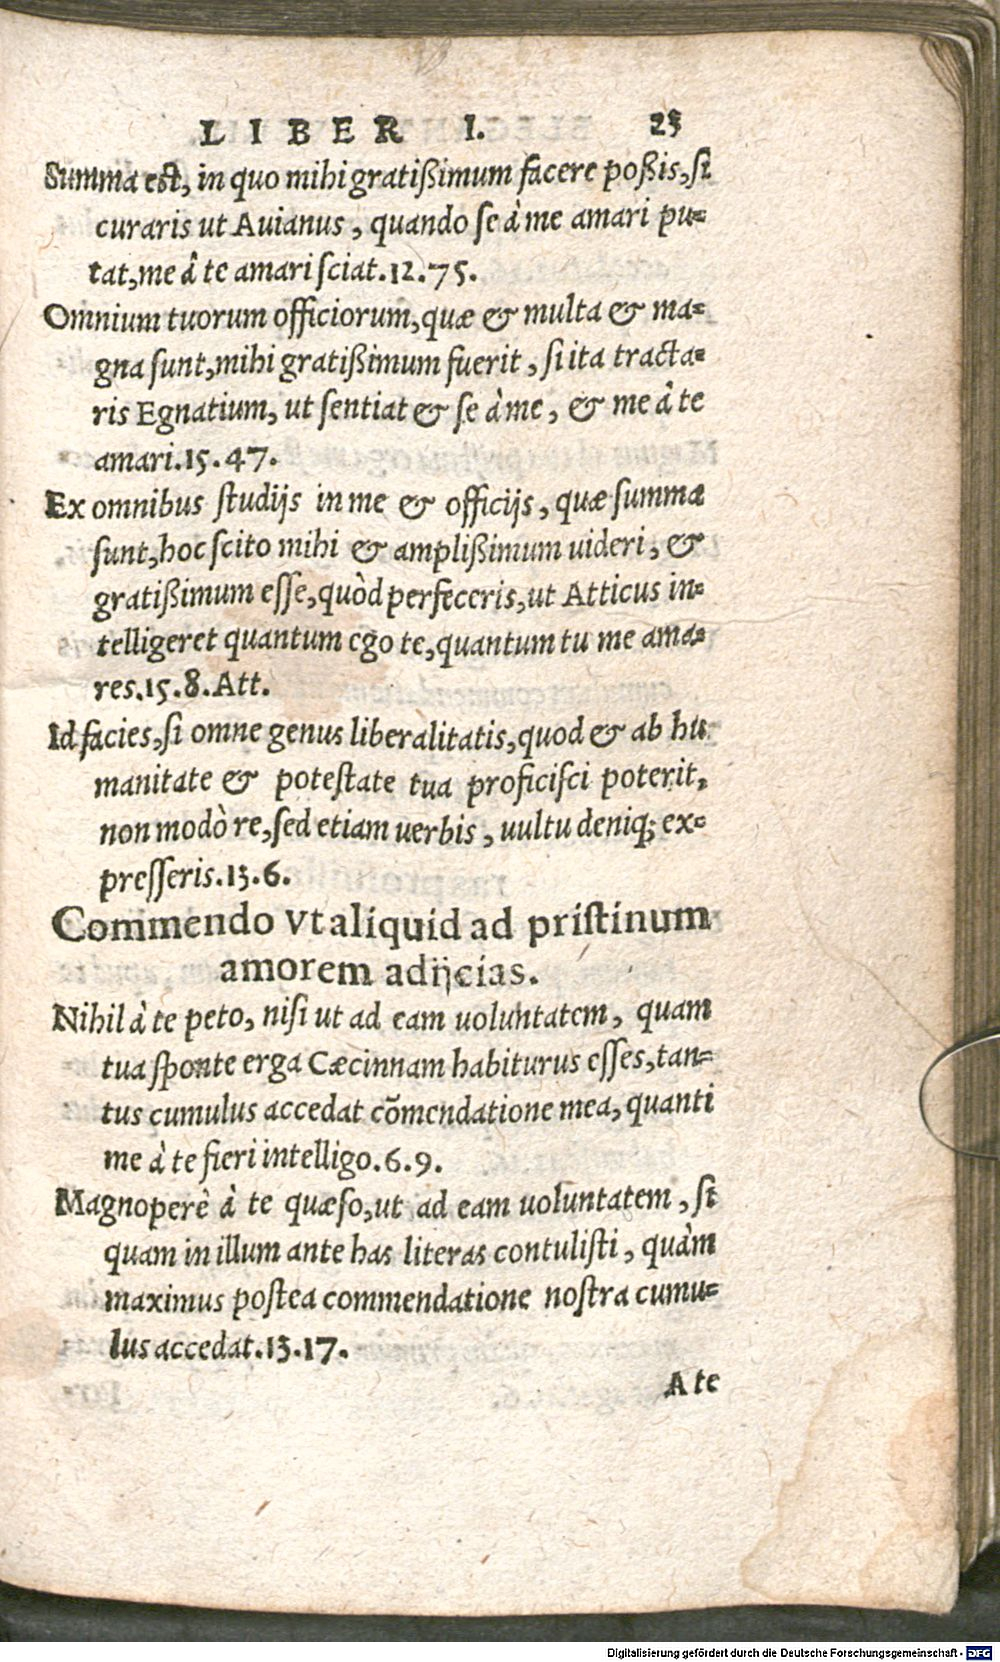 LIBER I. 23
Summa est, in quo mihi gratißimum facere poßis, ſi
curaris ut Auianus, quando ſe à me amari pu=
tat, me â te amari ſciat. 12. 75.
Omnium tuorum officiorum, quæ & multa & ma=
gna ſunt, mihi gratißimum fuerit, ſi ita tracta=
ris Egnatium, ut ſentiat & ſe à me, & me â te
amari. 15. 47.
Ex omnibus ſtudijs in me & officijs, quæ ſumma
ſunt, hoc ſcito mihi & amplißimum uideri, &
gratißimum eſſe, quòd perfeceris, ut Atticus in=
telligeret quantum ego te, quantum tu me ama=
res. 15. 8. Att.
Id facies, ſi omne genus liberalitatis, quod & ab hu
manitate & poteſtate tua proficiſci poterit,
non modò re, ſed etiam uerbis, uultu deniq; ex=
preſſeris. 13. 6.
Commendo vt aliquid ad priſtinum
amorem adijcias.
Nihil à te peto, niſi ut ad eam uoluntatem, quam
tua ſponte erga Cæcinnam habiturus eſſes, tan=
tus cumulus accedat cõmendatione mea, quanti
me à te fieri intelligo. 6. 9.
Magnoperè à te quæſo, ut ad eam uoluntatem, ſi
quam in illum ante has literas contuliſti, quàm
maximus poſtea commendatione noſtra cumu=
lus accedat. 13. 17.
A te
Digitalisierung gefördert durch die Deutsche Forschungsgemeinschaft - DFG